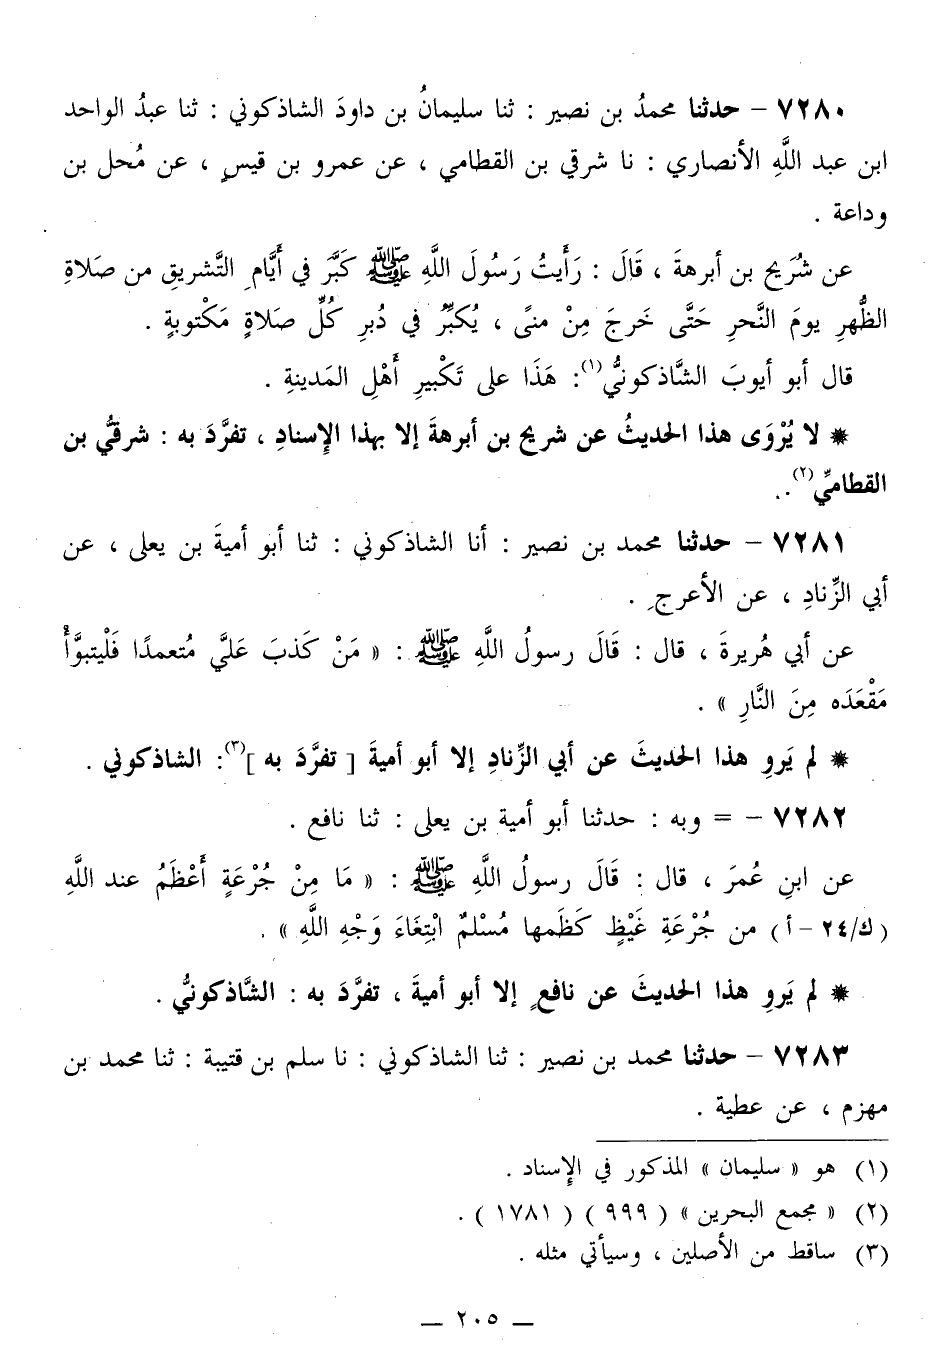 ٧٢٨٠ – حدثنا محمدُ بن نصير : ثنا سليمانُ بن داودَ الشاذكوني : ثنا عبدُ الواحد
ابن عبد اللَّهِ الأنصاري : نا شرقي بن القطامي ، عن عمرو بن قيسٍ ، عن مُحل بن
وداعة .
عن شُرَيح بن أبرهةَ ، قَالَ : رَأَيتُ رَسُولَ اللَّهِ ﷺ كَبَّرَ في أَيَّامِ التَّشريقِ من صَلاةِ
الظُّهرِ يومَ النَّحرِ حَتَّى خَرجَ مِنْ منىً ، يُكبِّرُ في دُبرِ كُلِّ صَلاةٍ مَكْتوبةٍ .
قال أبو أيوبَ الشَّاذكونيُّ(١): هَذَا على تَكْبيرِ أَهْلِ المَدينةِ .
* لا يُرْوَى هذا الحديثُ عن شريح بن أبرهةَ إلا بهذا الإِسنادِ ، تفرَّدَ به : شرقيُّ بن
القطاميِّ(٢).
٧٢٨١ – حدثنا محمد بن نصير : أنا الشاذكوني : ثنا أبو أميةَ بن يعلى ، عن
أبي الزِّنادِ ، عن الأعرجِ .
عن أبي هُريرةَ ، قال : قَالَ رسولُ اللَّهِ ﷺ : « مَنْ كَذبَ عَليَّ مُتعمدًا فَلْيتبوَّأْ
مَقْعَدَه مِنَ النَّارِ » .
* لم يَروِ هذا الحديثَ عن أبي الزِّنادِ إلا أبو أميةَ [ تفرَّدَ به ](٣): الشاذكوني .
٧٢٨٢ – = وبه : حدثنا أبو أمية بن يعلى : ثنا نافع .
عن ابنِ عُمرَ ، قال : قَالَ رسولُ اللَّهِ ﷺ : « مَا مِنْ جُرْعَةٍ أَعْظَمُ عند اللَّهِ
(ك/٢٤ – أ) من جُرْعَةِ غَيْظٍ كَظَمها مُسْلمٌ ابْتِغَاءَ وَجْهِ اللَّهِ » .
* لم يَروِ هذا الحديثَ عن نافعٍ إلا أبو أميةَ ، تفرَّدَ به : الشَّاذكونيُّ .
٧٢٨٣ – حدثنا محمد بن نصير : ثنا الشاذكوني : نا سلم بن قتيبة : ثنا محمد بن
مهزم ، عن عطية .
(١) هو « سليمان » المذكور في الإِسناد .
(٢) « مجمع البحرين » ( ٩٩٩ ) ( ١٧٨١ ) .
(٣) ساقط من الأصلين ، وسيأتي مثله .
— ٢٠٥ —